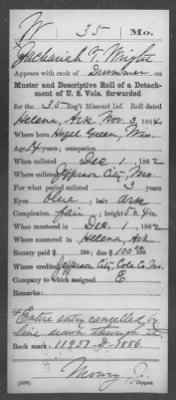 W 35 Mo.
Zachariah T. Wright
Appears with rank of Drummer on
Muster and Descriptive Roll of a Detach-
ment of U. S. Vols. forwarded
for the 35 Reg't Missouri Inf. Roll dated
Helena, Ark Nov 3, 1864
Where born Hazel Green, Wis.
Age 14 years; occupation
When enlisted Dec 1, 1862
Where enlisted Jefferson City, Mo.
For what period enlisted 3 years
Eyes blue; hair dark
Complexion fair; height 5 ft. 4 in.
When mustered in Dec 1, 1862
Where mustered in Helena, Ark
Bounty paid $ ; due $ 100
Where credited Jefferson City, Cole Co. Mo.
Company to which assigned E
Remarks:
Entire entry cancelled by
line drawn through it.
Book mark: 11937-D-1886
Mowry
(339) Copyist.